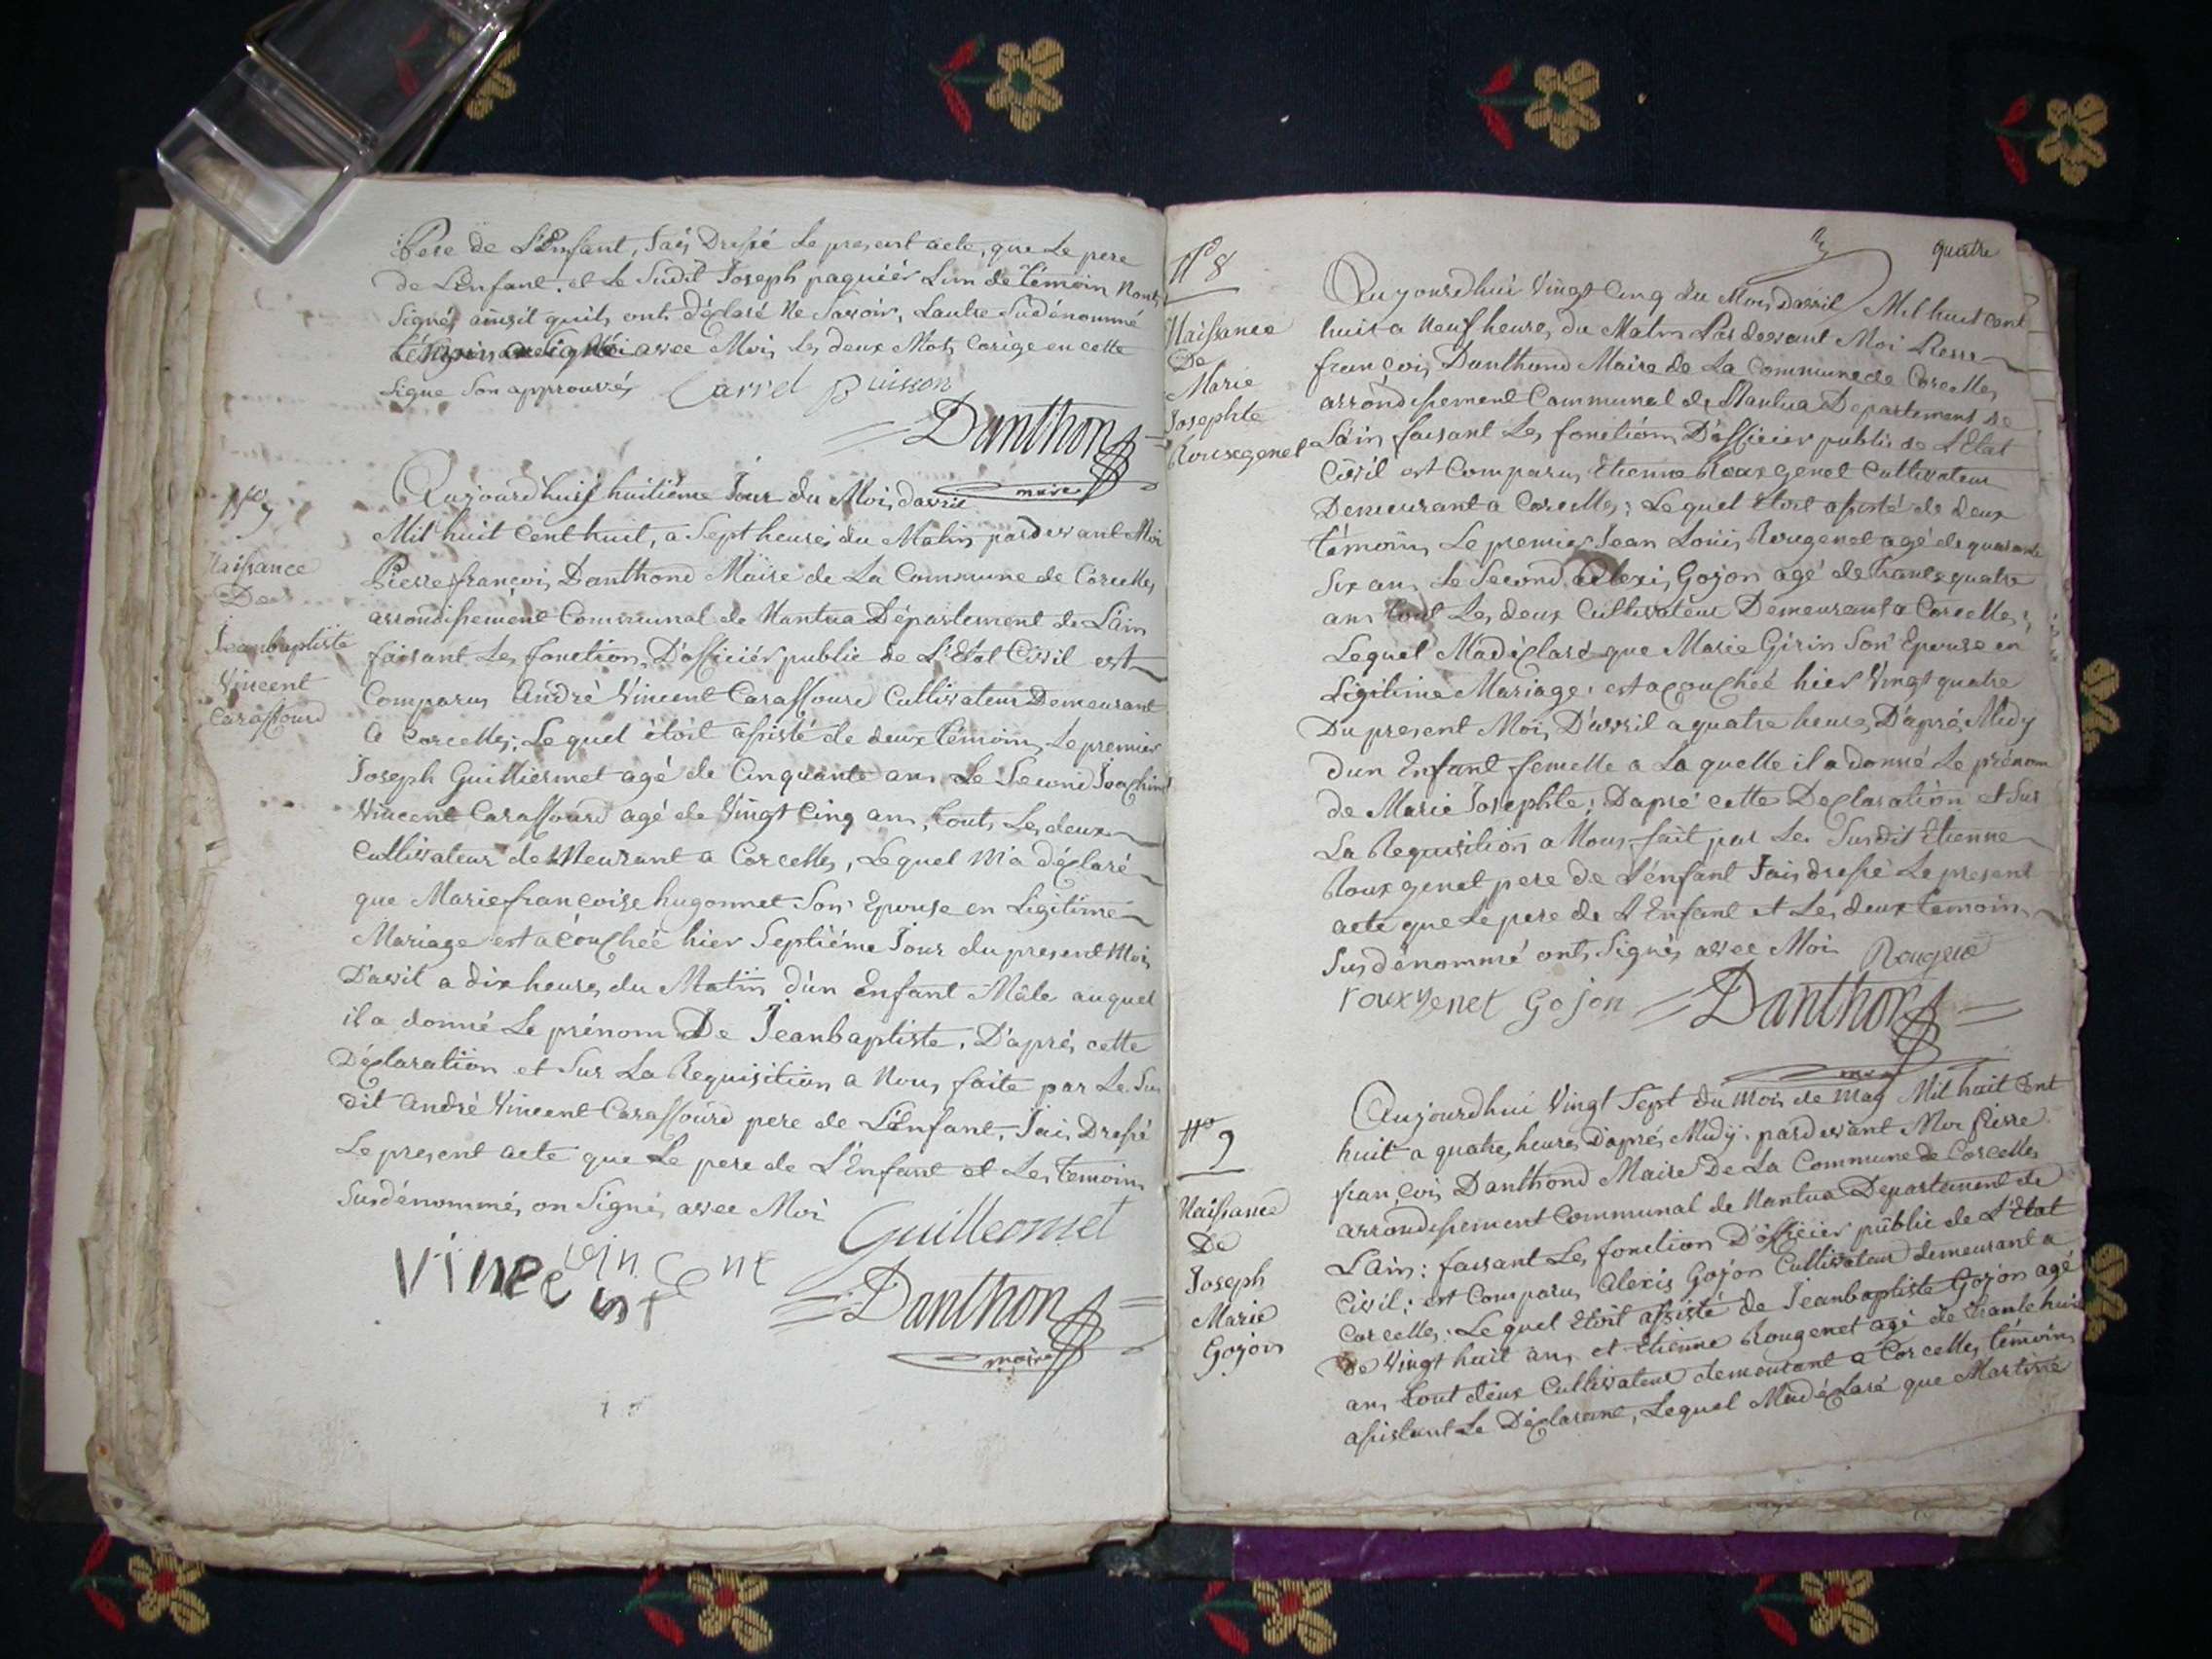 Pere de L'Enfant, Jais Dressé Le present acte, que Le pere
de L'enfant. et Le Sudit Joseph paquiér Lun de témoin Nont
Signés ainsit quils onts déclaré Ne Savoir, Lautre Sudénommé
avec Moi Les deux Mots Corige en cette
Ligne Son approuvés Carrel Buisson
Danthon
maire
N° 7
Naissance
De
Jeanbaptiste
Vincent
Carassourd
Aujourdhuis huitiéme Jour du Mois davril
Mil huit Cent huit, a Sept heures du Matin pardevant Moi
Pierre françois Danthond Maire de La Commune de Corcelles
arrondissement Communal de Nantua Département de L'ain
faisant Les fonction, D'officiér public de L'Etat Civil est
Comparus André Vincent Carassourd Cultivateur Demeurant
a Corcelles; Lequel étóit assisté de deux témoins, Le premier
Joseph Guilliermet agé de Cinquante ans Le Second Joachim
Vincent Carassourd agé de Vingt Cinq ans, tout Les deux
Cultivateur deMeurant a Corcelles, Lequel M'a déclaré
que Marie françoise hugonnet Son Epouse en Ligitime
Mariage est acouchéé hier Septiéme Jour du present Mois
D'avril a dix heures du Matin d'un Enfant Mâle auquel
il a donné Le prénom De Jeanbaptiste. D'aprés cette
Déclaration et Sur La Requisition a Nous faite par Le Sus
dit André Vincent Carassourd pere de L'énfant, Jais Dressé
Le present acte que Le pere de L'Enfant et Les temoins
Susdénommés on Signés avec Moi
Guilleomet
Vincent
Vincent
Danthon
maire
quatre
N° 8
Naissance
De
Marie
Josephte
Rouxgenet
Aujourdhui Vingt Cinq du Mois davril Mil huit Cent
huit a Neuf heures, du Matin Pardevant Moi Pierre
françois Danthond Maire de La Commune de Corcelles
arrondissement Communal de Nantua Departement de
L'ain faisant Les fonctións D'officier public de L'Etat
Civil est Comparus Etienne Rouxgenet Cultivateur
Demeurant a Corcelles; Lequel étoit assisté de deux
témoins, Le premier Jean Louis Rougenet agé de quarante
Six ans Le Second Alexis Gojon agé de trante quatre
ans tout Les deux Cultivateur Demeurant a Corcelles;
Lequel Madéclaré que Marie Girin Son Epouse en
Ligitime Mariage, est acouchéé hier Vingt quatre
Du present Mois D'avril a quatre heures, D'aprés Midy
dun Enfant femelle a Laquelle il a donné Le prénom
de Marie Josephte; Dapré cette Declaration et Sur
La Requisition a Nous fait par Le Susdit Etienne
Rouxgenet pere de L'énfant Jais dressé Le present
acte que Le pere de L'Enfant et Les deux temoins
Susdénommé onts Signés avec Moi Rougene
rouxgenet Gojon Danthon
maire
N° 9
Naissance
De
Joseph
Marie
Gojon
Aujourdhui Vingt Sept du Mois de May Mil huit Cent
huit a quatre, heures, D'aprés Midy. pardevant Moi Pierre
françois Danthond Maire De La Commune de Corcelles
arrondissement Communal de Nantua Departement de
L'Ain: faisant Les fonction D'officier public de L'Etat
Civil; est Comparus Alexis Gojon Cultivateur demeurant a
Corcelles: Lequel Etoit assisté de Jeanbaptiste Gojon agé
de Vingt huit ans, et Etienne Rougenet agé de trante huit
ans, tout deux Cultivateur demeurant a Corcelles, témoins
assistant Le Déclarant, Lequel Madéclaré que Martine